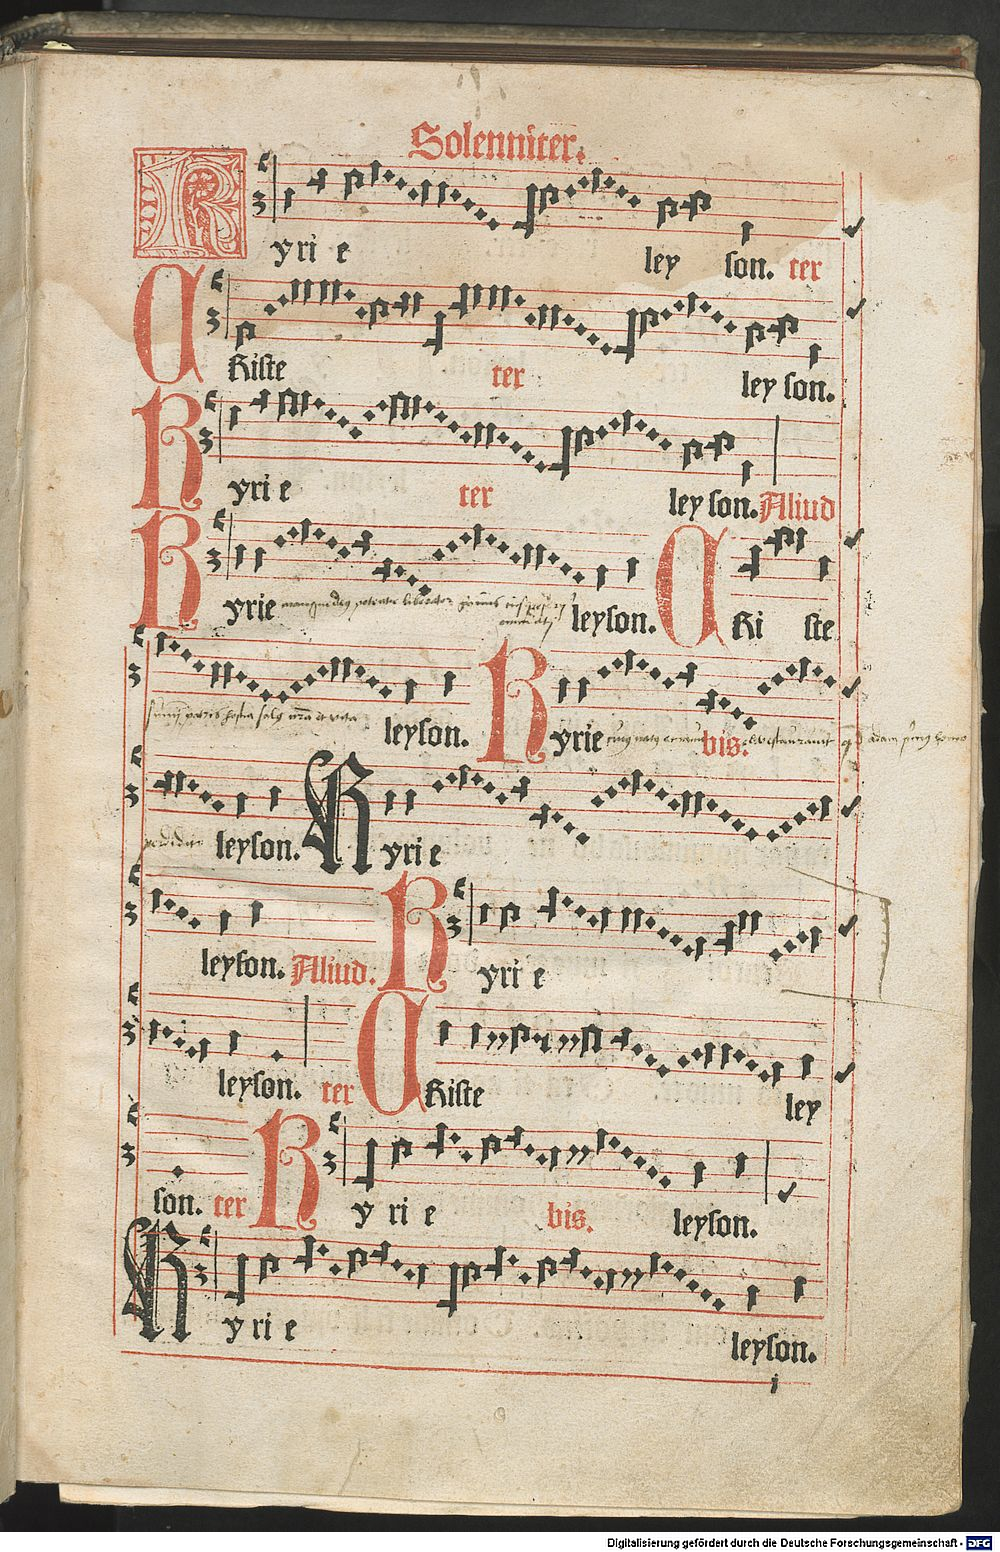 Solenniter.
Kyri e ley son. ter
Christe ter ley son.
Kyri e ter ley son. Aliud
Kyrie leyson. Chri ste
leyson. Kyrie bis.
leyson. Kyri e
leyson. Aliud. Kyri e
leyson. ter Christe ley
son. ter Kyri e bis. leyson.
Kyri e leyson.
i
Digitalisierung gefördert durch die Deutsche Forschungsgemeinschaft - DFG